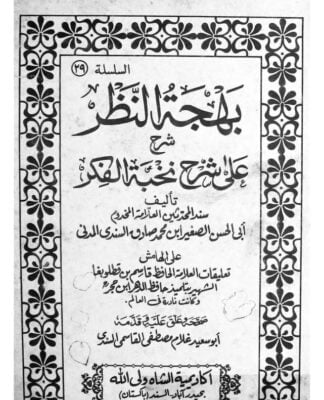 السلسلة (٢٩)
بهجة النظر
شرح
على شرح نخبة الفكر
تأليف
سند المحدثين العلامة المخدوم
أبي الحسن الصغير ابن محمد صادق السندي المدني
على الهامش
تعليقات العلامة الحافظ قاسم بن قطلوبغا
الشهير بتلميذ حافظ الدهر ابن حجر
وكانت نادرة في العالم.
صححه وعلق عليه وقدمه
أبو سعيد غلام مصطفى القاسمي السندي
اكاديمية الشاه ولي الله
بحيدرآباد. السند (باكستان)